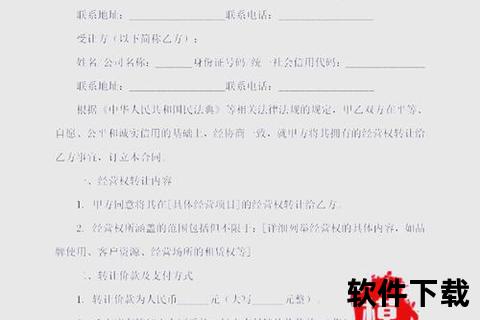 联系地址：_______________联系电话：_______________
受让方（以下简称乙方）：
姓名/公司名称：______身份证号码/统一社会信用代码：_____________
联系地址：_______________联系电话：_______________
根据《中华人民共和国民法典》等相关法律法规的规定，甲乙双方在平等、
自愿、公平和诚实信用的基础上，经协商一致，就甲方将其拥有的经营权转让给
乙方事宜，订立本合同。
一、经营权转让内容
1. 甲方同意将其在[具体经营项目]的经营权转让给乙方。
2. 经营权所涵盖的范围包括但不限于：[详细列举经营权的具体内容，如品
牌使用、客户资源、经营场所的租赁权等]
二、转让价款及支付方式
1. 转让价款为人民币______元（大写______元整）。
软件下载